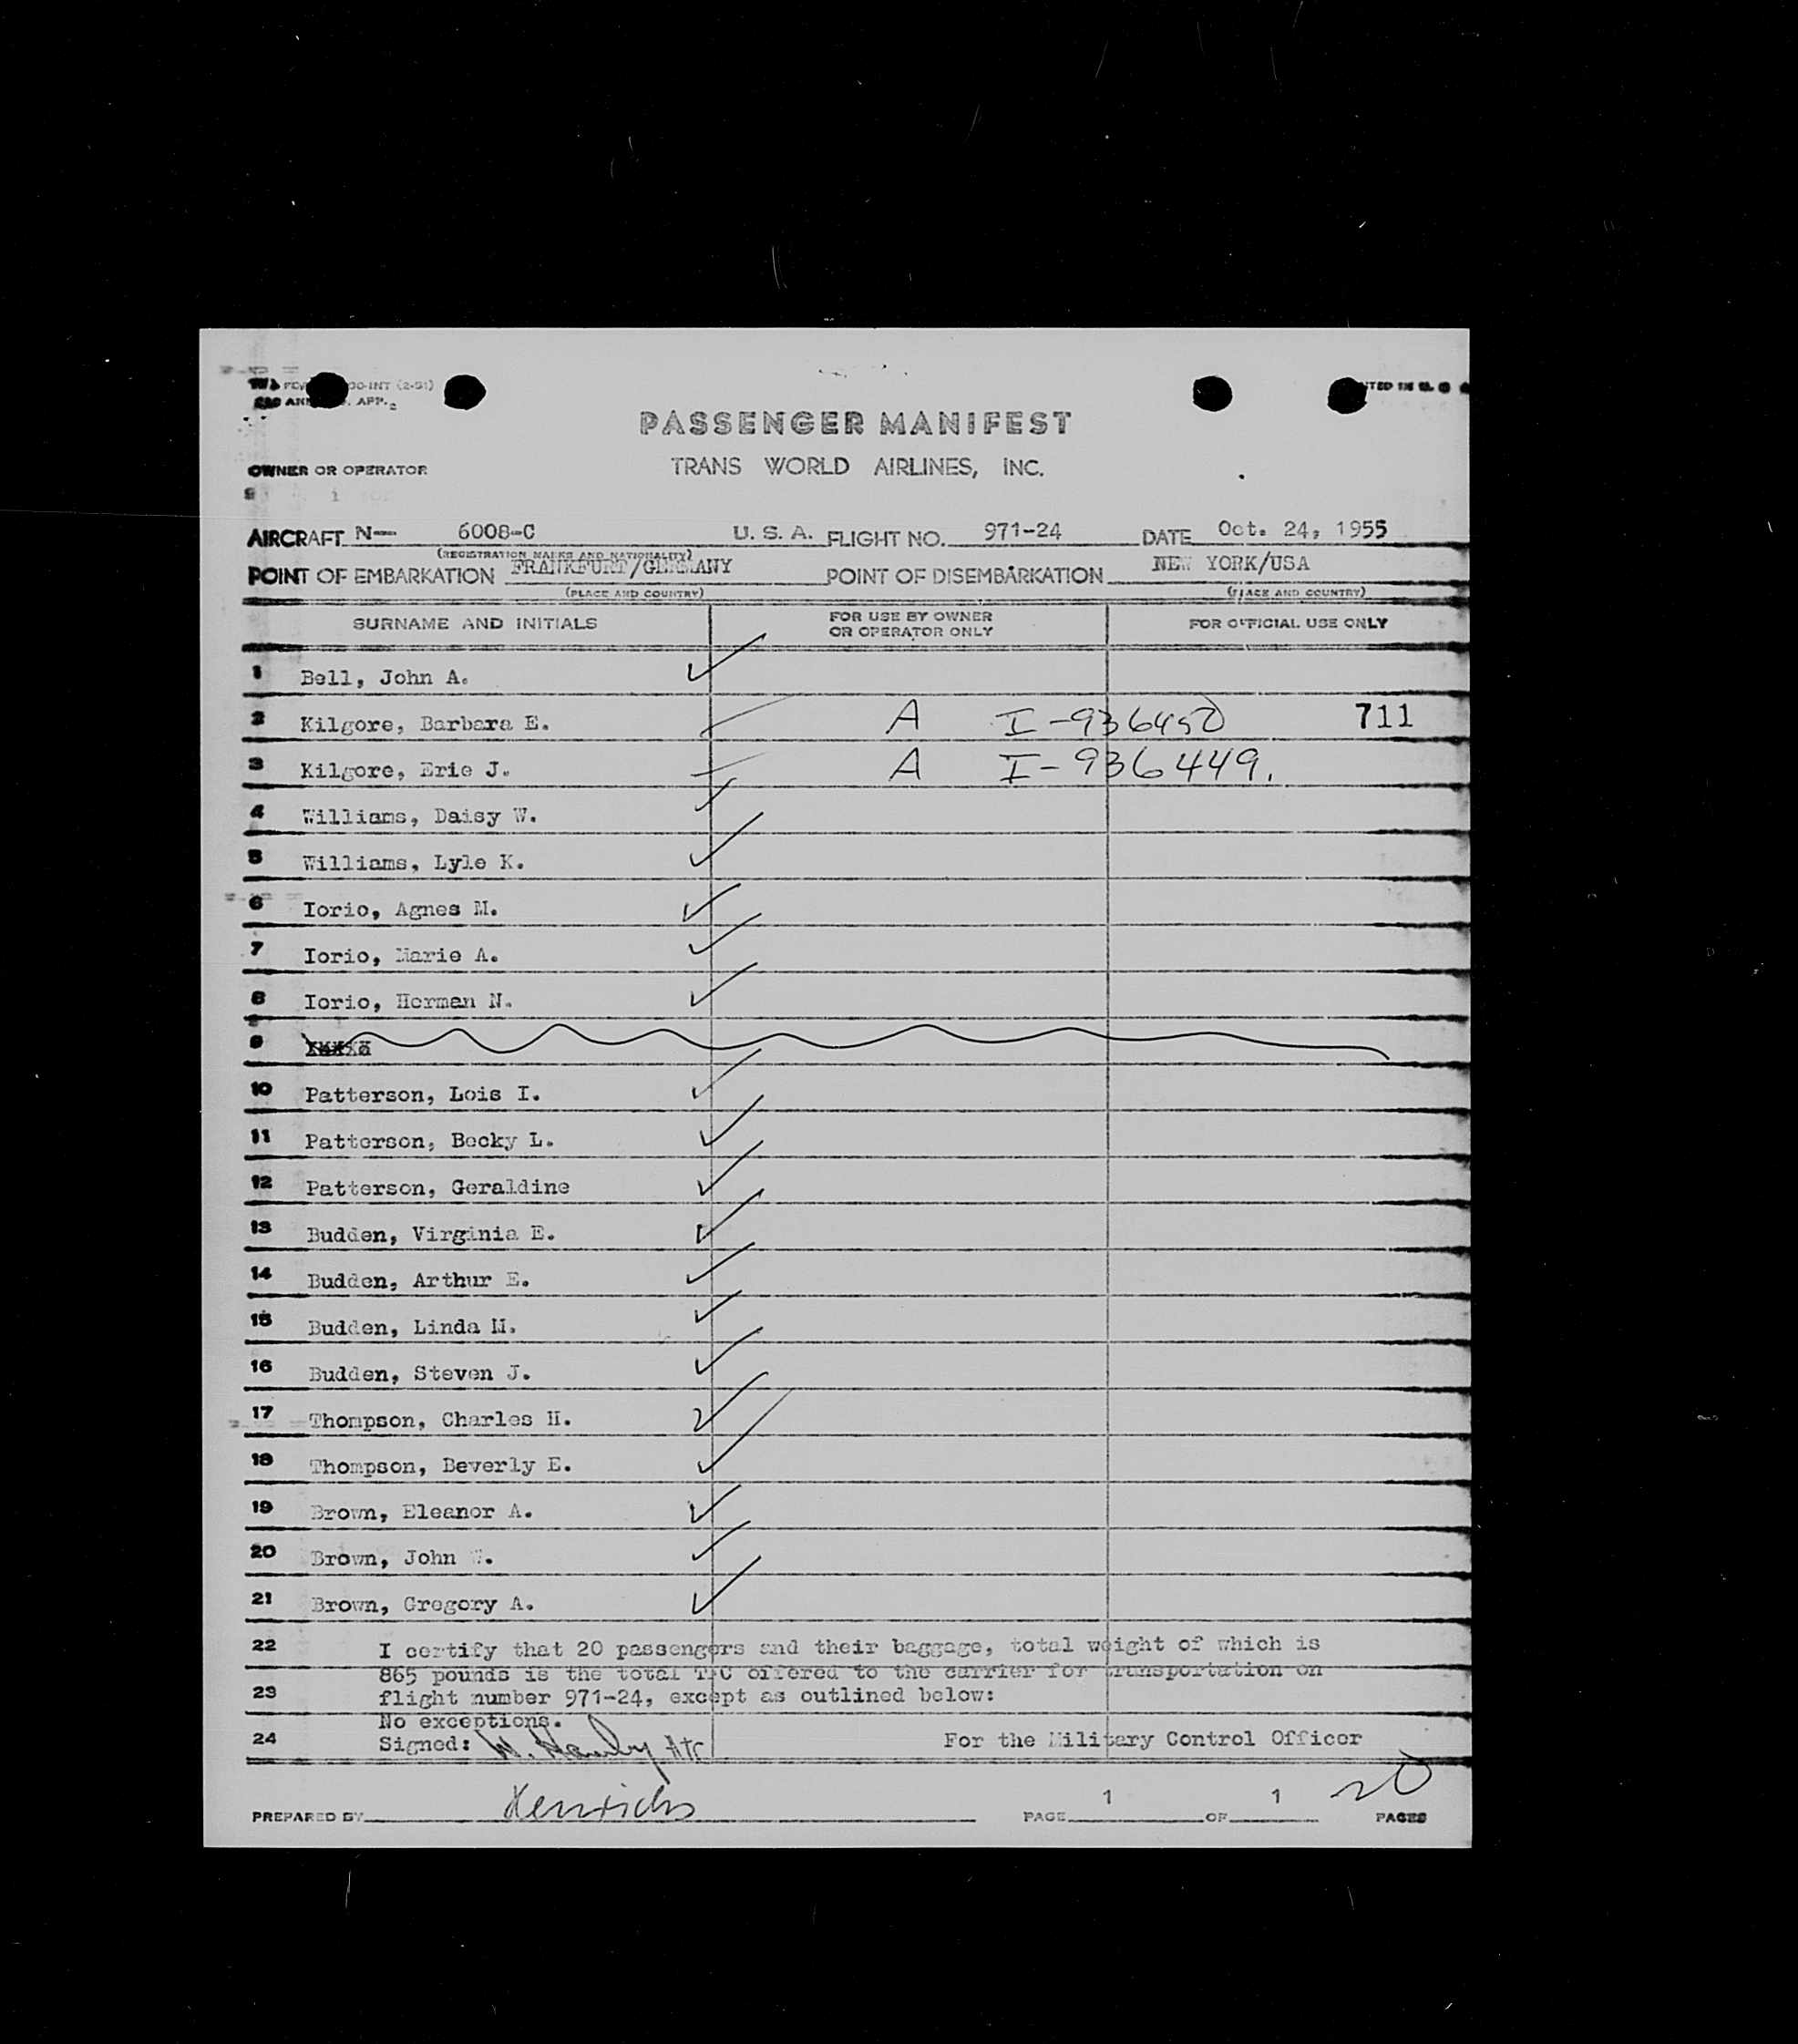 PASSENGER MANIFEST
OWNER OR OPERATOR TRANS WORLD AIRLINES, INC.
AIRCRAFT N- 6008-C U. S. A. FLIGHT NO. 971-24 DATE Oct. 24, 1955
(REGISTRATION MARKS AND NATIONALITY)
POINT OF EMBARKATION FRANKFURT/GERMANY POINT OF DISEMBARKATION NEW YORK/USA
(PLACE AND COUNTRY) (PLACE AND COUNTRY)
SURNAME AND INITIALS FOR USE BY OWNER OR OPERATOR ONLY FOR OFFICIAL USE ONLY
1 Bell, John A.
2 Kilgore, Barbara E. A I-936450 711
3 Kilgore, Erie J. A I-936449.
4 Williams, Daisy W.
5 Williams, Lyle K.
6 Iorio, Agnes M.
7 Iorio, Marie A.
8 Iorio, Herman N.
9
10 Patterson, Lois I.
11 Patterson, Becky L.
12 Patterson, Geraldine
13 Budden, Virginia E.
14 Budden, Arthur E.
15 Budden, Linda M.
16 Budden, Steven J.
17 Thompson, Charles H.
18 Thompson, Beverly E.
19 Brown, Eleanor A.
20 Brown, John
21 Brown, Gregory A.
22 I certify that 20 passengers and their baggage, total weight of which is
865 pounds is the total offered to the carrier for transportation on
23 flight number 971-24, except as outlined below:
No exceptions.
24 Signed: For the Military Control Officer
PREPARED BY Henrichs PAGE 1 OF 1 PAGES 20